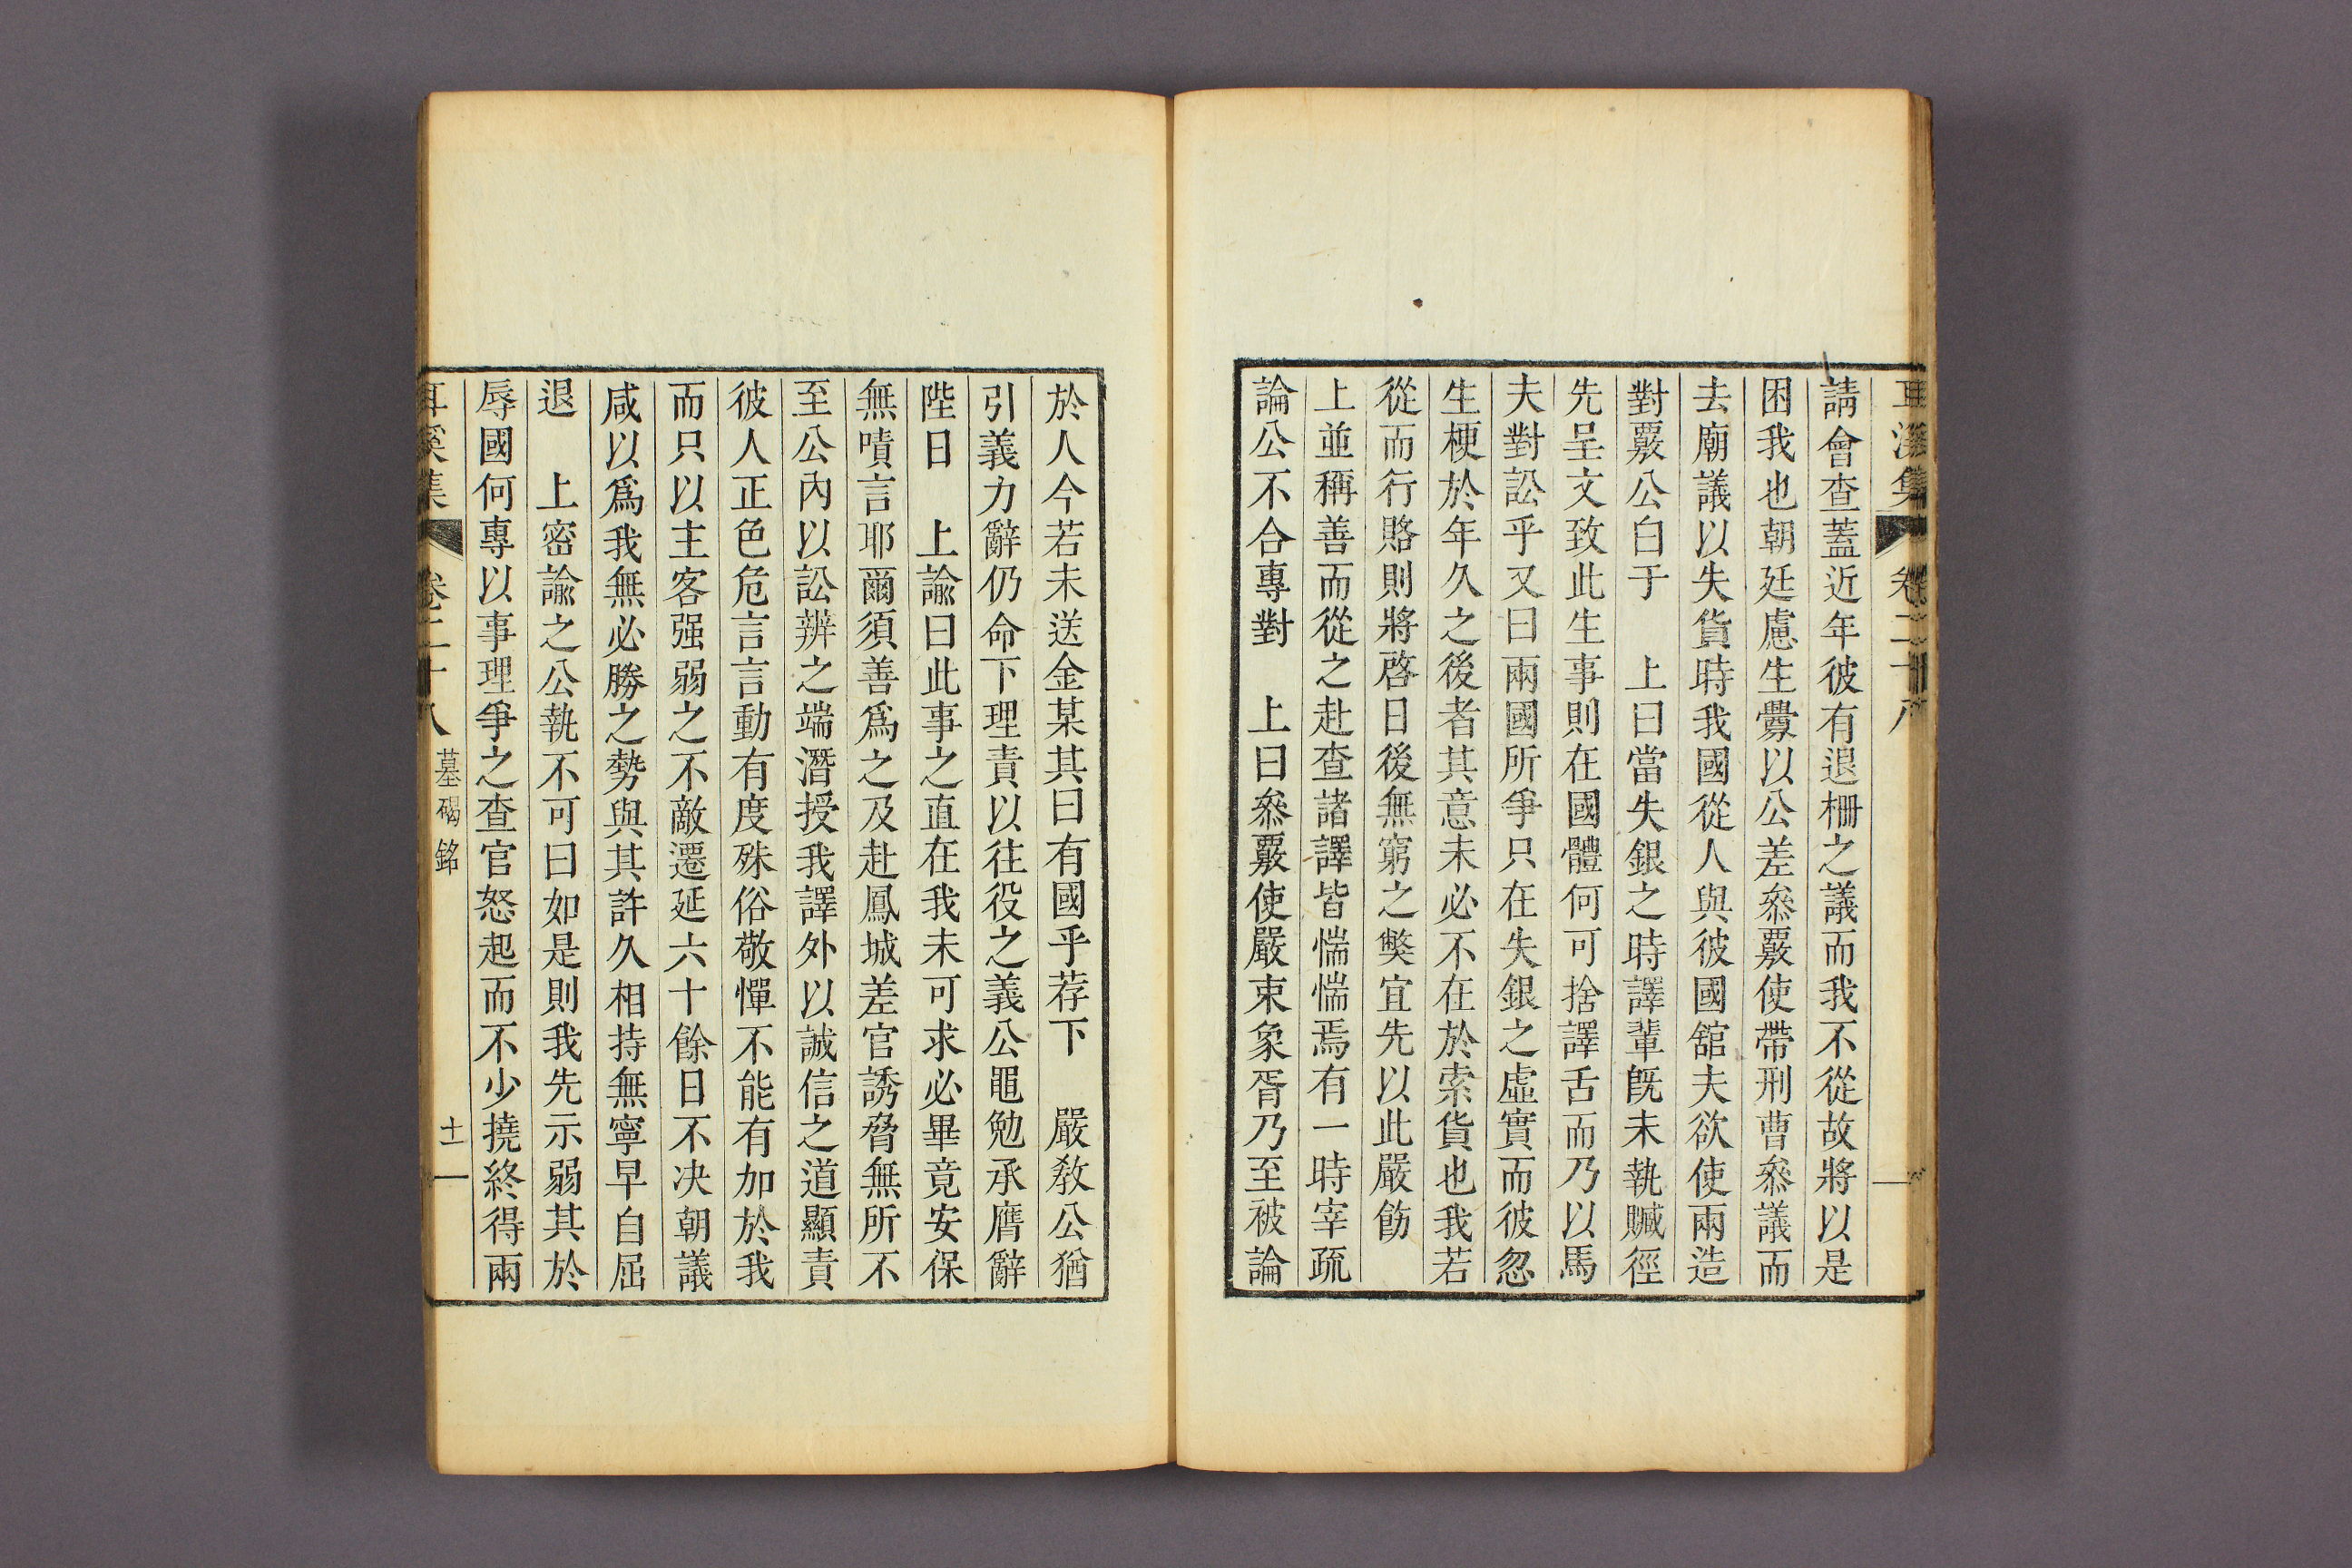 耳溪集 卷二十八
請會查蓋近年彼有退柵之議而我不從故將以是
困我也朝廷慮生釁以公差叅覈使帶刑曹叅議而
去廟議以失貨時我國從人與彼國舘夫欲使兩造
對覈公白于 上曰當失銀之時譯輩旣未執贓徑
先呈文致此生事則在國體何可捨譯舌而乃以馬
夫對訟乎又曰兩國所爭只在失銀之虛實而彼忽
生梗於年久之後者其意未必不在於索貨也我若
從而行賂則將啓日後無窮之獘宜先以此嚴飭
上並稱善而從之赴查諸譯皆惴惴焉有一時宰疏
論公不合專對 上曰叅覈使嚴束象胥乃至被論
於人今若未送金某其曰有國乎荐下 嚴敎公猶
引義力辭仍命下理責以往役之義公黽勉承膺辭
陛日 上諭曰此事之直在我未可求必畢竟安保
無嘖言耶爾須善爲之及赴鳳城差官誘脅無所不
至公內以訟辨之端潛授我譯外以誠信之道顯責
彼人正色危言言動有度殊俗敬憚不能有加於我
而只以主客强弱之不敵遷延六十餘日不决朝議
咸以爲我無必勝之勢與其許久相持無寧早自屈
退 上密諭之公執不可曰如是則我先示弱其於
辱國何專以事理爭之查官怒起而不少撓終得兩
耳溪集 卷二十八 墓碣銘 十一